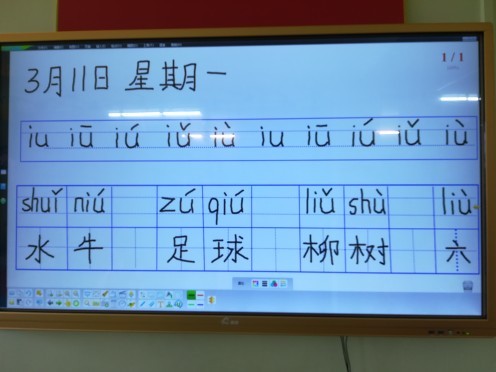 3月11日 星期一
1/1
iu iū iú iǔ iù iu iū iú iǔ iù
shuǐ niú zú qiú liǔ shù liù
水 牛 足 球 柳 树 六